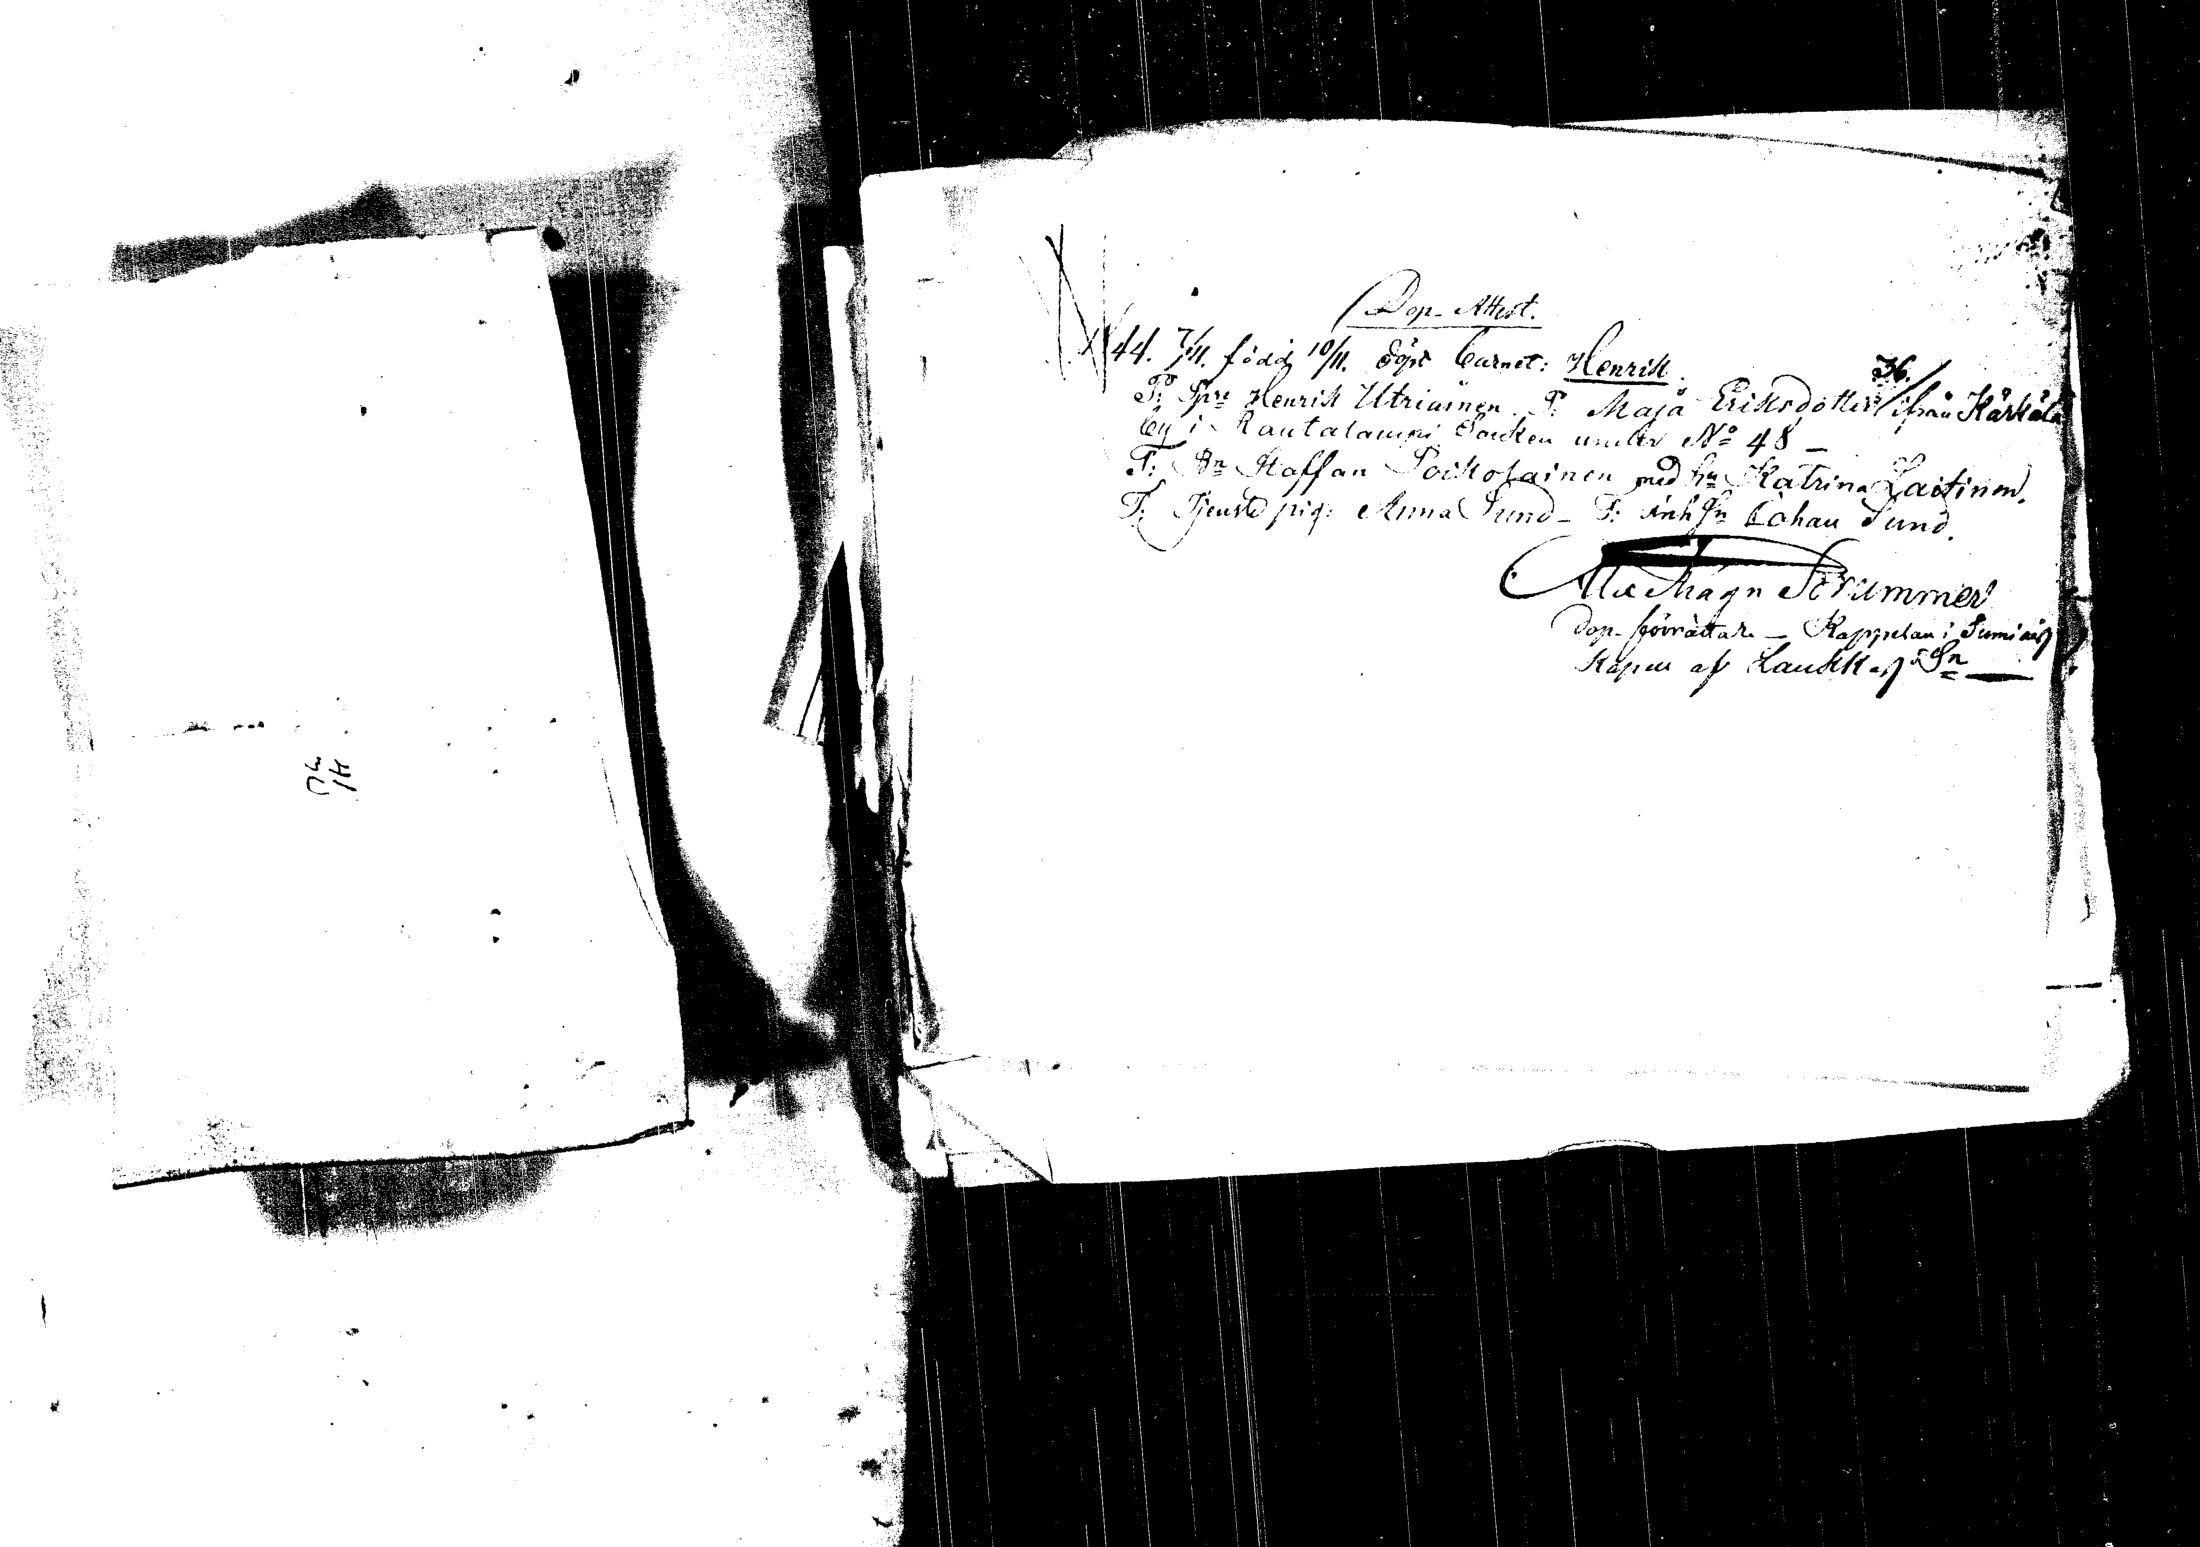 Dop-Attest.
44. 7/11. född 10/11. döpt barnet: Henrik.
36.
F: Spr Henrik Utriainen. F: Maja Eriksdotter / ifrån Kärkälä
by i Rautalampi Socken under No 48 –
F: Bn Staffan Poikolainen med hu Katrina Laitinen.
F: Tjenste pig: Anna Sund – F: inh Sn Johan Sund.
Alx Magn Strummer
Dop-förrättare – Kappelan i Sumiais
Kapell af Laukkas Sn